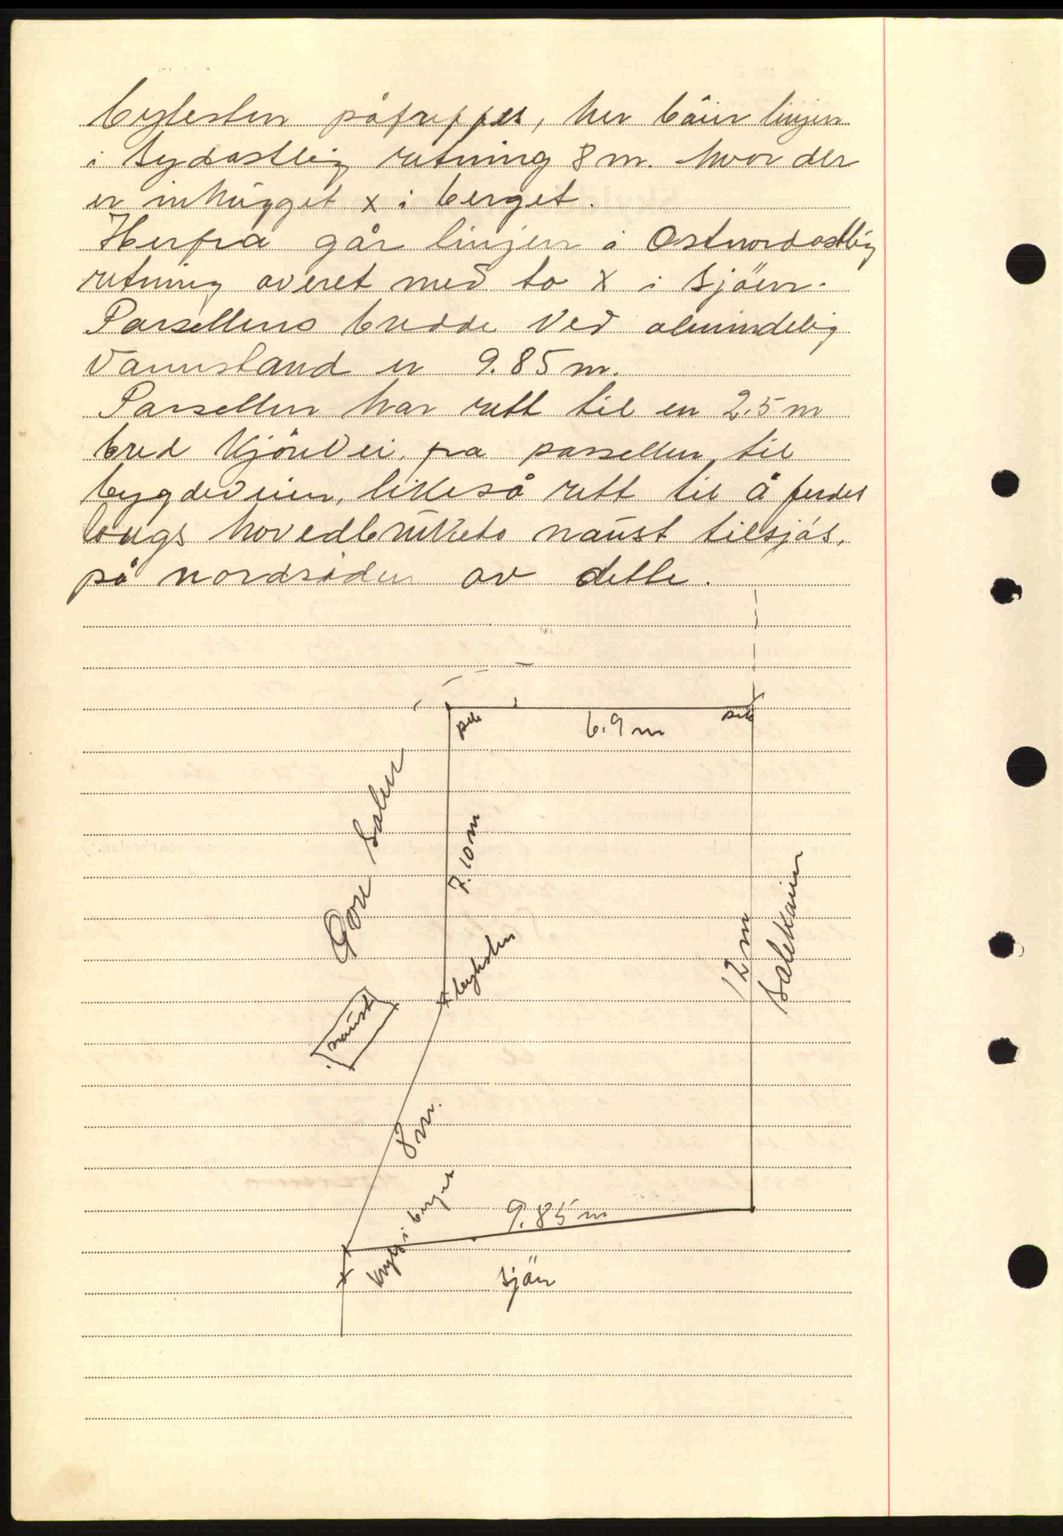 byhesten påtreffes, her bäier linjen
i sydostlig retning 8 m. hvor der
er inhugget x i berget.
Herfra går linjen i Ostnordostlig
retning overet med to X i sjöen.
Parsellens bredde ved almindelig
Vannstand er 9.85 m.
Parsellen har rett til en 2.5 m
bred Kjörevei fra parsellen til
bygdeveien, likeså rett til å ferdes
langs hovedbrukets naust tilsjös,
på nordsiden av dette.
6.9 m
7.10 m
naust
12 m
8 m.
kryss i berget
9.85 m
sjön